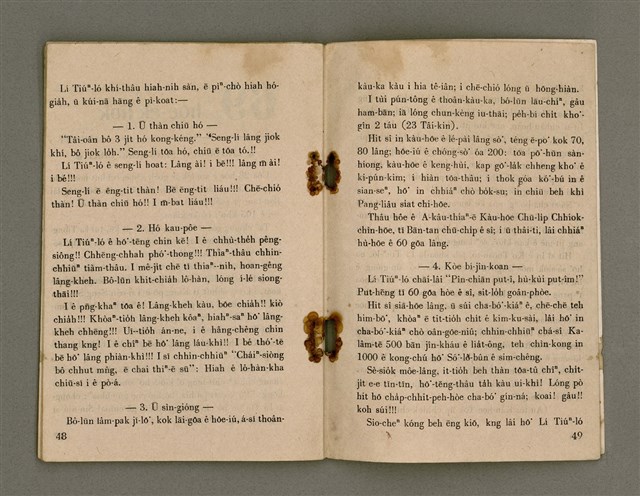 Lí Tiúⁿ-ló khí-thâu hiah-nih sàn, ē pìⁿ-chò hiah hó-
giàh, ū kúi-nā hāng ê pì-koat:—
— 1. Ū thàn chiū hó —
"Tâi-oân bô 3 jit hó kong-kéng." "Seng-lí lâng jiok
khì, bô jiok lóh." Seng-lí tōa hó, chiū ē tōa tó.!!
Lí Tiúⁿ-ló ê seng-lí hoat: Lâng ài! i bē!!! lâng m̄ ài!
i bé!!!
Seng-lí ē êng-tit thàn! Bē êng-tit liáu!!! Chē-chió
thàn! Ū thàn chiū hó!! I m̄-bat liáu!!!
— 2. Hó kau-pôe —
Lí Tiúⁿ-ló ê hō͘-tēng chin kē! I ê chhù-thèh pêng-
siông!! Chhēng-chhah phó͘-thong!!! Thiaⁿ-thâu chhin-
chhiūⁿ tiàm-thâu. I mê-jit chē tī thiaⁿ--nih, hoan-gêng
lâng-kheh. Bô-lūn khit-chiàh lô-hàn, lóng i-lē siong-
thāi!!!
I ê pn̄g-khaⁿ tōa ê! Lâng-kheh kàu, bōe chiàh!! kiò
chiàh!!! Khòaⁿ-tióh lâng-kheh kôaⁿ, hiahⁿ-saⁿ hō͘ lâng-
kheh chhēng!!! Ui-tióh án-ne, i ê hāng-chêng chin
thang kng! I ê chîⁿ bē hō͘ lâng láu-khì!! I bé thó͘-tē
bē hō͘ lâng phiàn-khì!!! I sī chhin-chhiūⁿ "Cháiⁿ-siòng
bô chhut mn̂g, ē chai thiⁿ-ē sū": Hiah ê lô-hàn-kha
chiū-sī i ê pò-á.
— 3. Ū sìn-gióng —
Bô-lūn lâm-pak jī-lō͘, kok lāi-gōa ê hōe-iú, á-sī thoân-
48
kàu-kàu kàu i hia tê-iân; i chē-chió lóng ū hōng-hiàn.
I túi pún-tông ê thoân-kàu-ka, bô-lūn lāu-chiⁿ, gâu
hâm-bān; iā lóng chun-kéng iu-thāi; péh-bí chit kho͘-
gîn 2 táu (23 Tâi-kin).
Hit sî in kàu-hōe ê lé-pài lâng sò͘, tēng ē-po͘ kok 70,
80 lâng; hōe-iú ê chóng-sò͘ óa 200: tōa pō͘-hūn sàn-
hiong, kàu-hōe ê keng-hùi, kap gō͘-láh chheng kho͘ ê
ki-pún-kim; i hiàn tōa-thâu; i thok góa kò͘-bú in ê
sian-seⁿ, hō͘ in chhiáⁿ chò bók-su; in chiū beh khì
Pang-liâu siat chi-hōe.
Thâu hôe ê A-kâu-thiaⁿ-ē Kàu-hōe Chū-lip Chhiok-
chìn-hōe, tī Bān-tan chū-chip ê sî; i ū thâi-ti, lâi chhiáⁿ
hù-hōe ê 60 gōa lâng.
— 4. Kòe bí-jîn-koan —
Lí Tiúⁿ-ló chāi-lâi "Pîn-chiān put-î, hù-kùi put-îm!"
Put-hēng tī 60 gōa hòe ê sî, sit-lòh goân-phòe.
Hit sî siā-hōe lâng, ū súi cha-bó͘-kiáⁿ ê, chē-chē teh
him-bō͘, khòaⁿ ē tit-tióh chit ê kim-ku-sài, lâi hō͘ in
cha-bó͘-kiáⁿ chò oân-gōe-niû; chhin-chhiūⁿ chá-sî Ka-
lâm-tē 500 bān jîn-kháu ê liát-ông, teh chin-kong in
1000 ê kong-chú hō͘ Só͘-lô-bûn ê sim-chêng.
Sè-siók môe-lâng, it-tióh beh thàn tōa-tû chîⁿ, chit-
jit e-e tīn-tīn, hō͘-tēng-thâu táh kàu ui-khì! Lóng pò
hit hō cháp-chhit-peh-hòe cha-bó͘ gín-ná; koai! gâu!!
koh súi!!!
Sio-cheⁿ kóng beh ēng kiō, kng lâi hō͘ Lí Tiúⁿ-ló
49